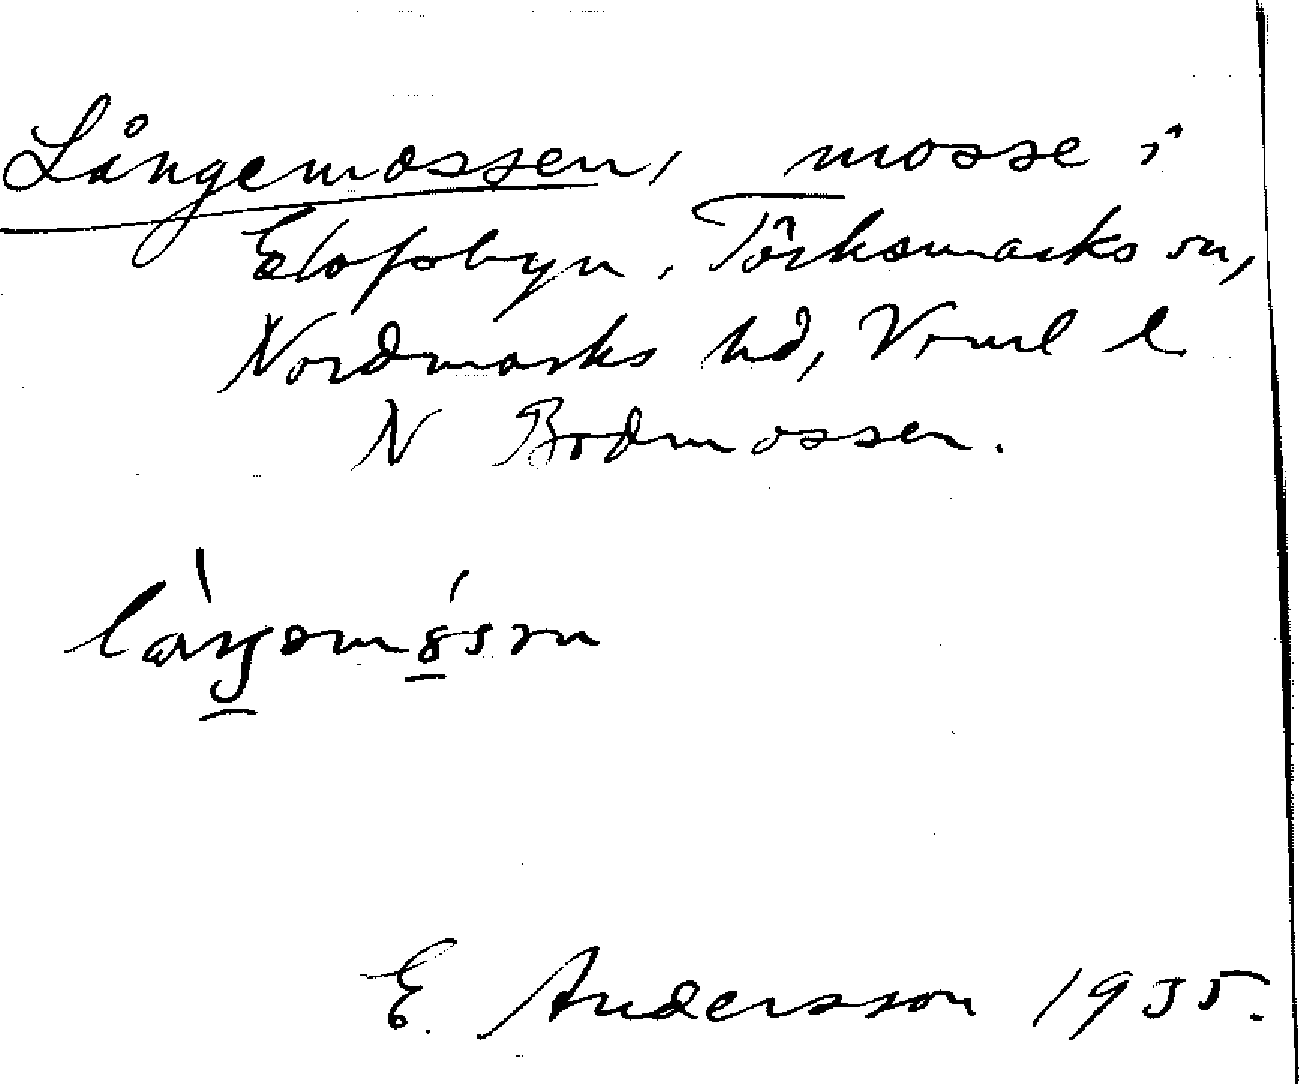 Långemossen, mosse i
Elofsbyn, Töcksmarks sn,
Nordmarks hd, Vrml l.
N Bodmossen.
E. Andersson 1935.